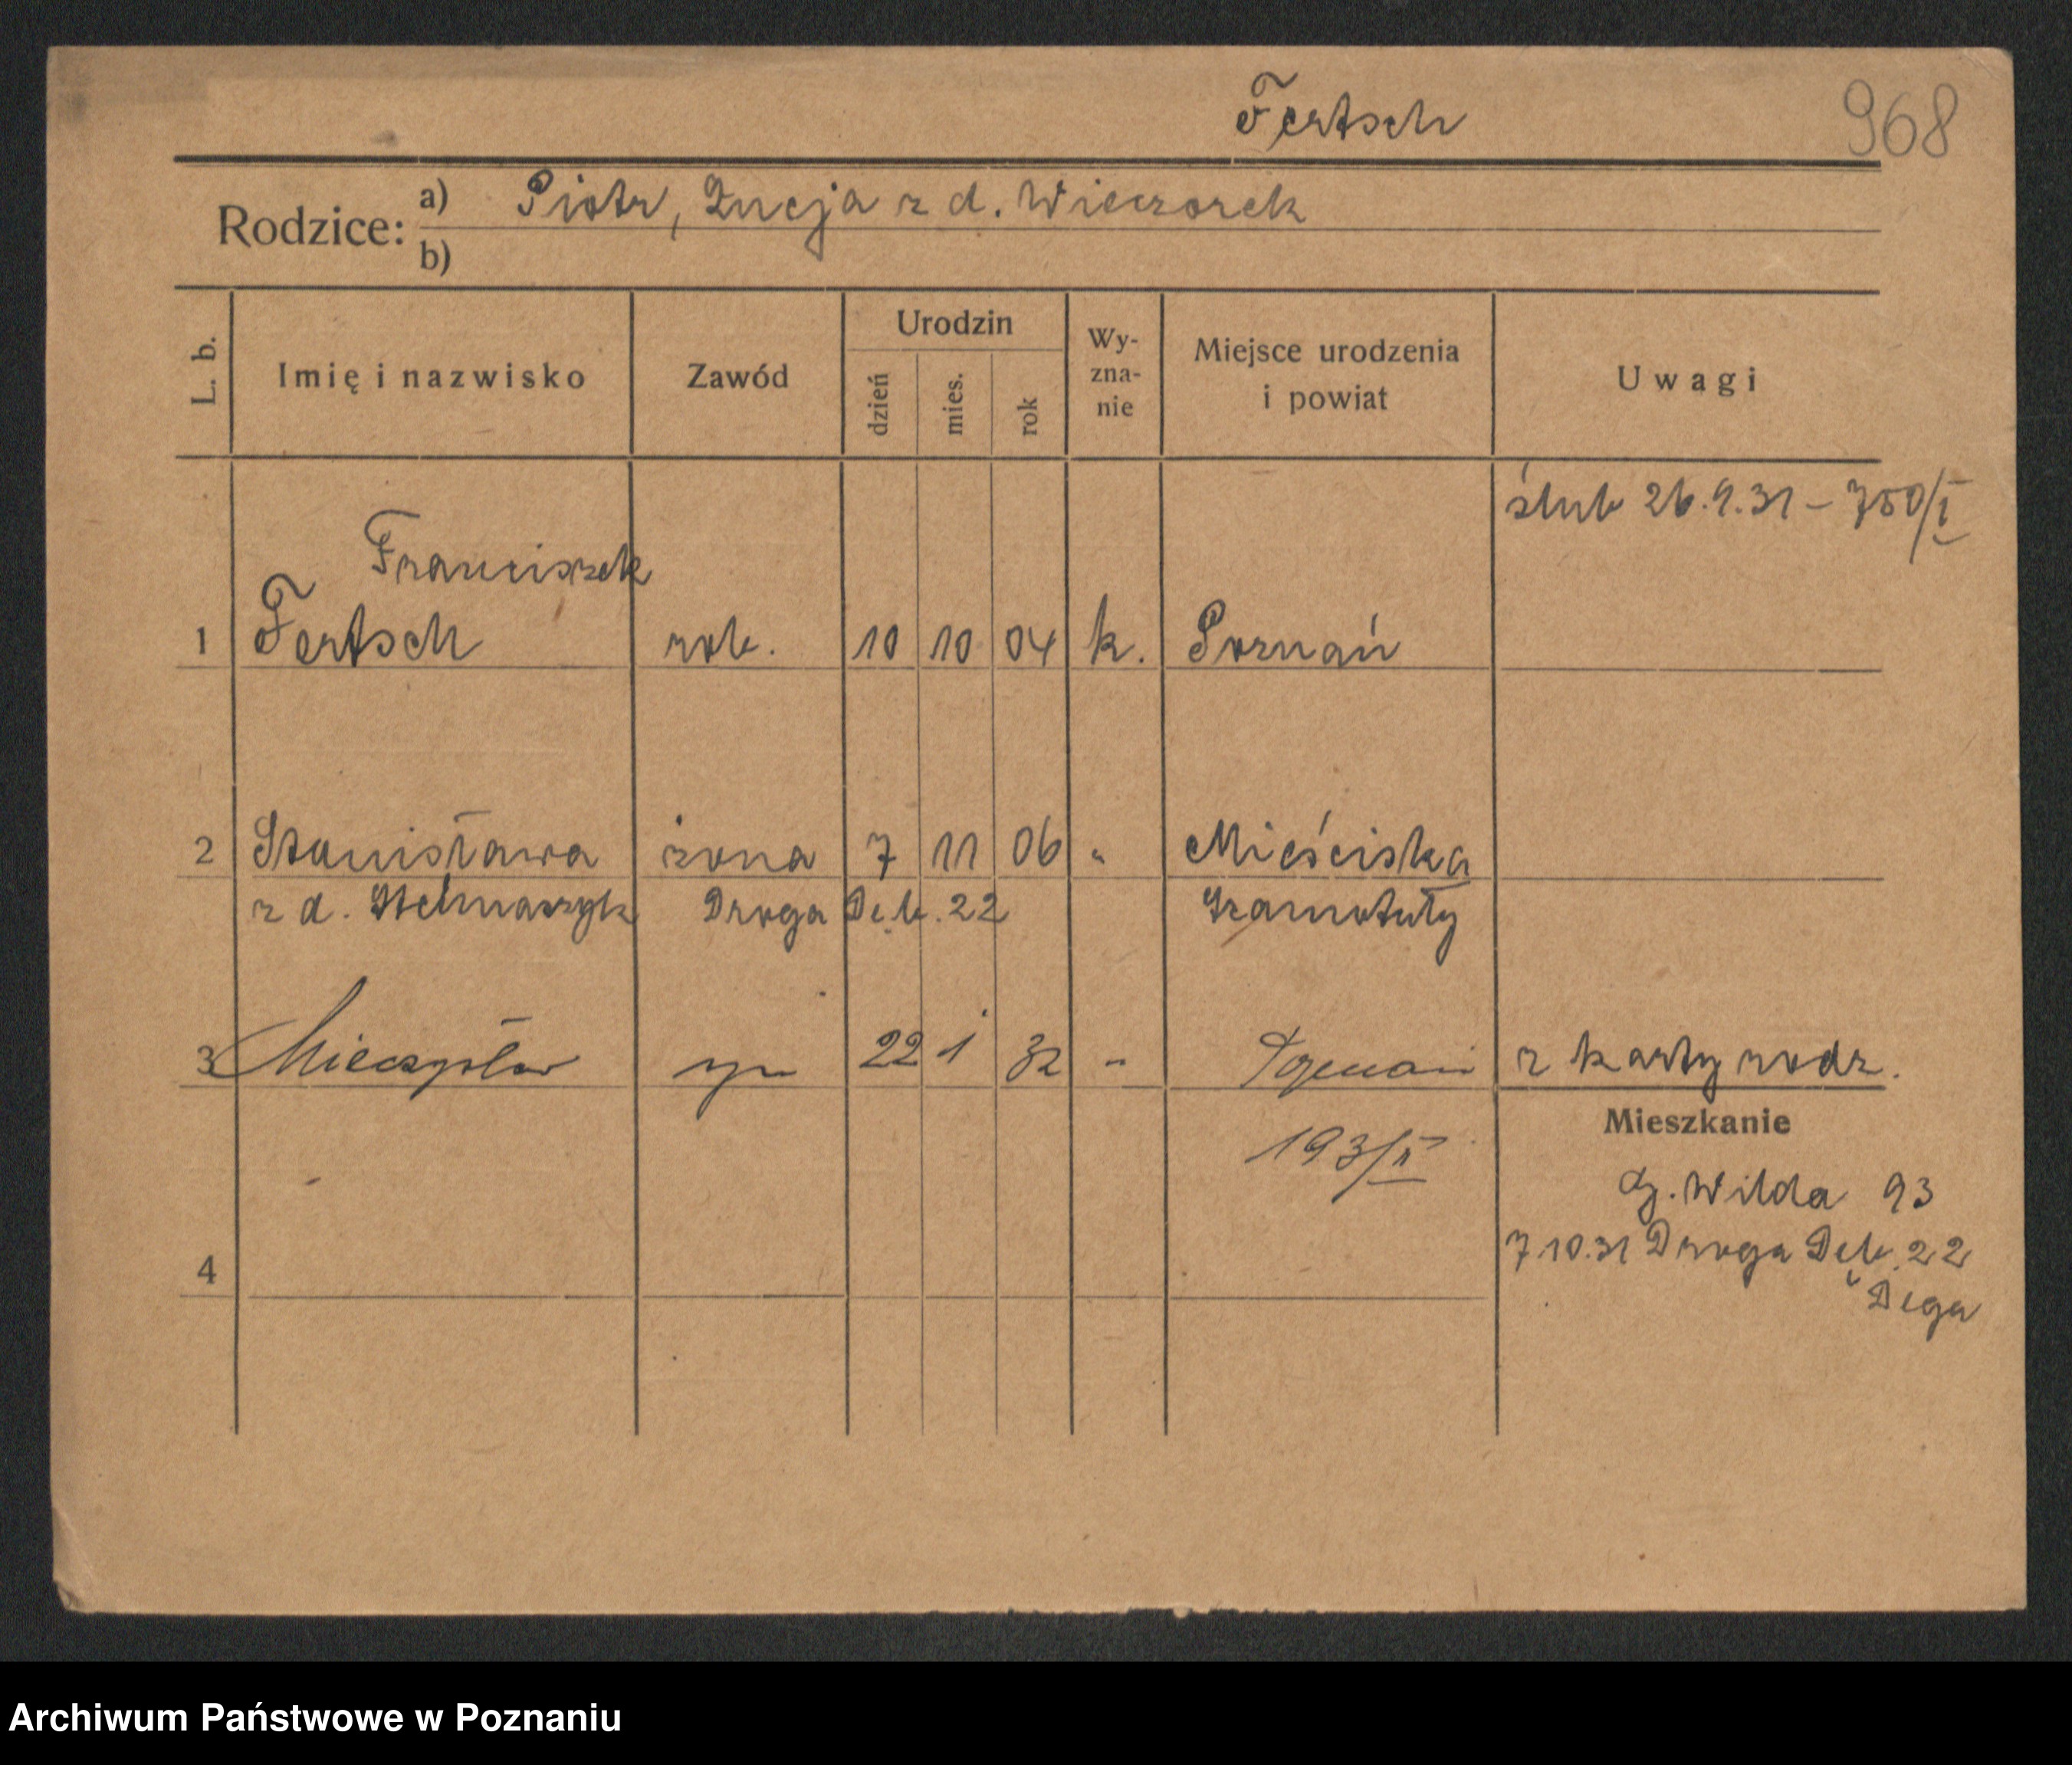 Fertsch 968
Rodzice: a) Piotr, Łucja z d. Wieczorek
b)
L. b. Imię i nazwisko Zawód Urodzin dzień mies. rok Wy-zna-nie Miejsce urodzenia i powiat Uwagi
ślub 26.9.31 – 750/I
Franciszek
1 Fertsch rob. 10 10 04 k. Poznań
2 Stanisława żona 7 11 06 " Mieściska
z d. Stelmaszyk Droga Dęb. 22 Szamotuły
3 Mieczysław syn 22 1 32 " Poznań z karty rodz.
Mieszkanie
193/II
G. Wilda 93
7.10.31 Droga Dęb. 22
4
Dega
Archiwum Państwowe w Poznaniu